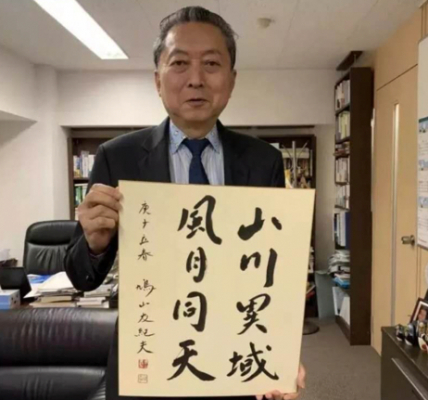 山川異域
風月同天
庚子立春
鳩山友紀夫